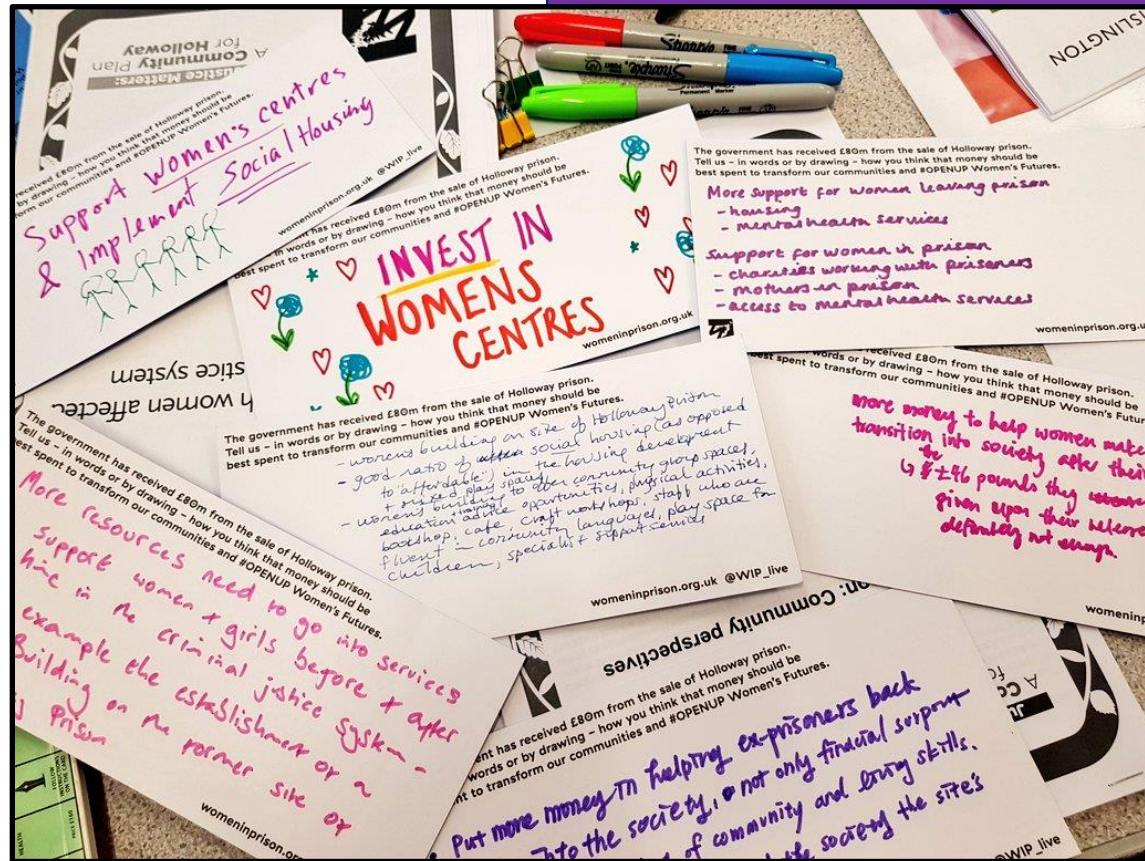 A Community Plan
for Holloway
Justice Matters:
ISLINGTON
Sharpie
Sharpie
Permanent Marker
received £80m from the sale of Holloway prison.
by drawing – how you think that money should be
form our communities and #OPENUP Women's Futures.
Support women's centres
& implement Social Housing
womeninprison.org.uk @WIP_live
has received £80m from the sale of Holloway prison.
in words or by drawing – how you think that money should be
best spent to transform our communities and #OPENUP Women's Futures.
INVEST IN
WOMENS
CENTRES
womeninprison.org.uk
The government has received £80m from the sale of Holloway prison.
Tell us – in words or by drawing – how you think that money should be
best spent to transform our communities and #OPENUP Women's Futures.
More support for women leaving prison
- housing
- mental health services
Support for women in prison
- charities working with prisoners
- mothers in prison
- access to mental health services
womeninprison.org.u
stice system
h women affected
The government has received £80m from the sale of Holloway prison.
Tell us – in words or by drawing – how you think that money should be
best spent to transform our communities and #OPENUP Women's Futures.
- women's building on site of Holloway Prison
- good ratio of social housing (as opposed
to "affordable") in the housing development
+ mixed play spaces
- women's building to offer community group spaces,
education advice training opportunities, physical activities,
bookshop, cafe, craft workshops, staff who are
fluent in community languages, play space for
children, specialist support services
womeninprison.org.uk @WIP_live
received £80m from the sale of Holloway prison.
by drawing – how you think that money should be
communities and #OPENUP Women's Futur
more money to help women make
transition into society after their
the £46 pounds they
given upon their release
definitely not enough.
womeninp
The government has received £80m from the sale of Holloway prison.
Tell us – in words or by drawing – how you think that money should be
est spent to transform our communities and #OPENUP Women's Futures.
More resources need to go into services
support women + girls before + after
time in the criminal justice system -
example the establishment of a
Building on the former site of
prison
womeninprison.or
on: Community perspectives
ent has received £80m from the sale of Holloway prison.
words or by drawing – how you think that money should be
nt to transform our communities and #OPENUP Women's Futures.
• Put more money in helping ex-prisoners back
into the society, not only finacial surport
of community and living skills.
the society the site's
@WIP_live
FOLLOW
INSTRUCTIONS
ON THE CARD
HEALTH